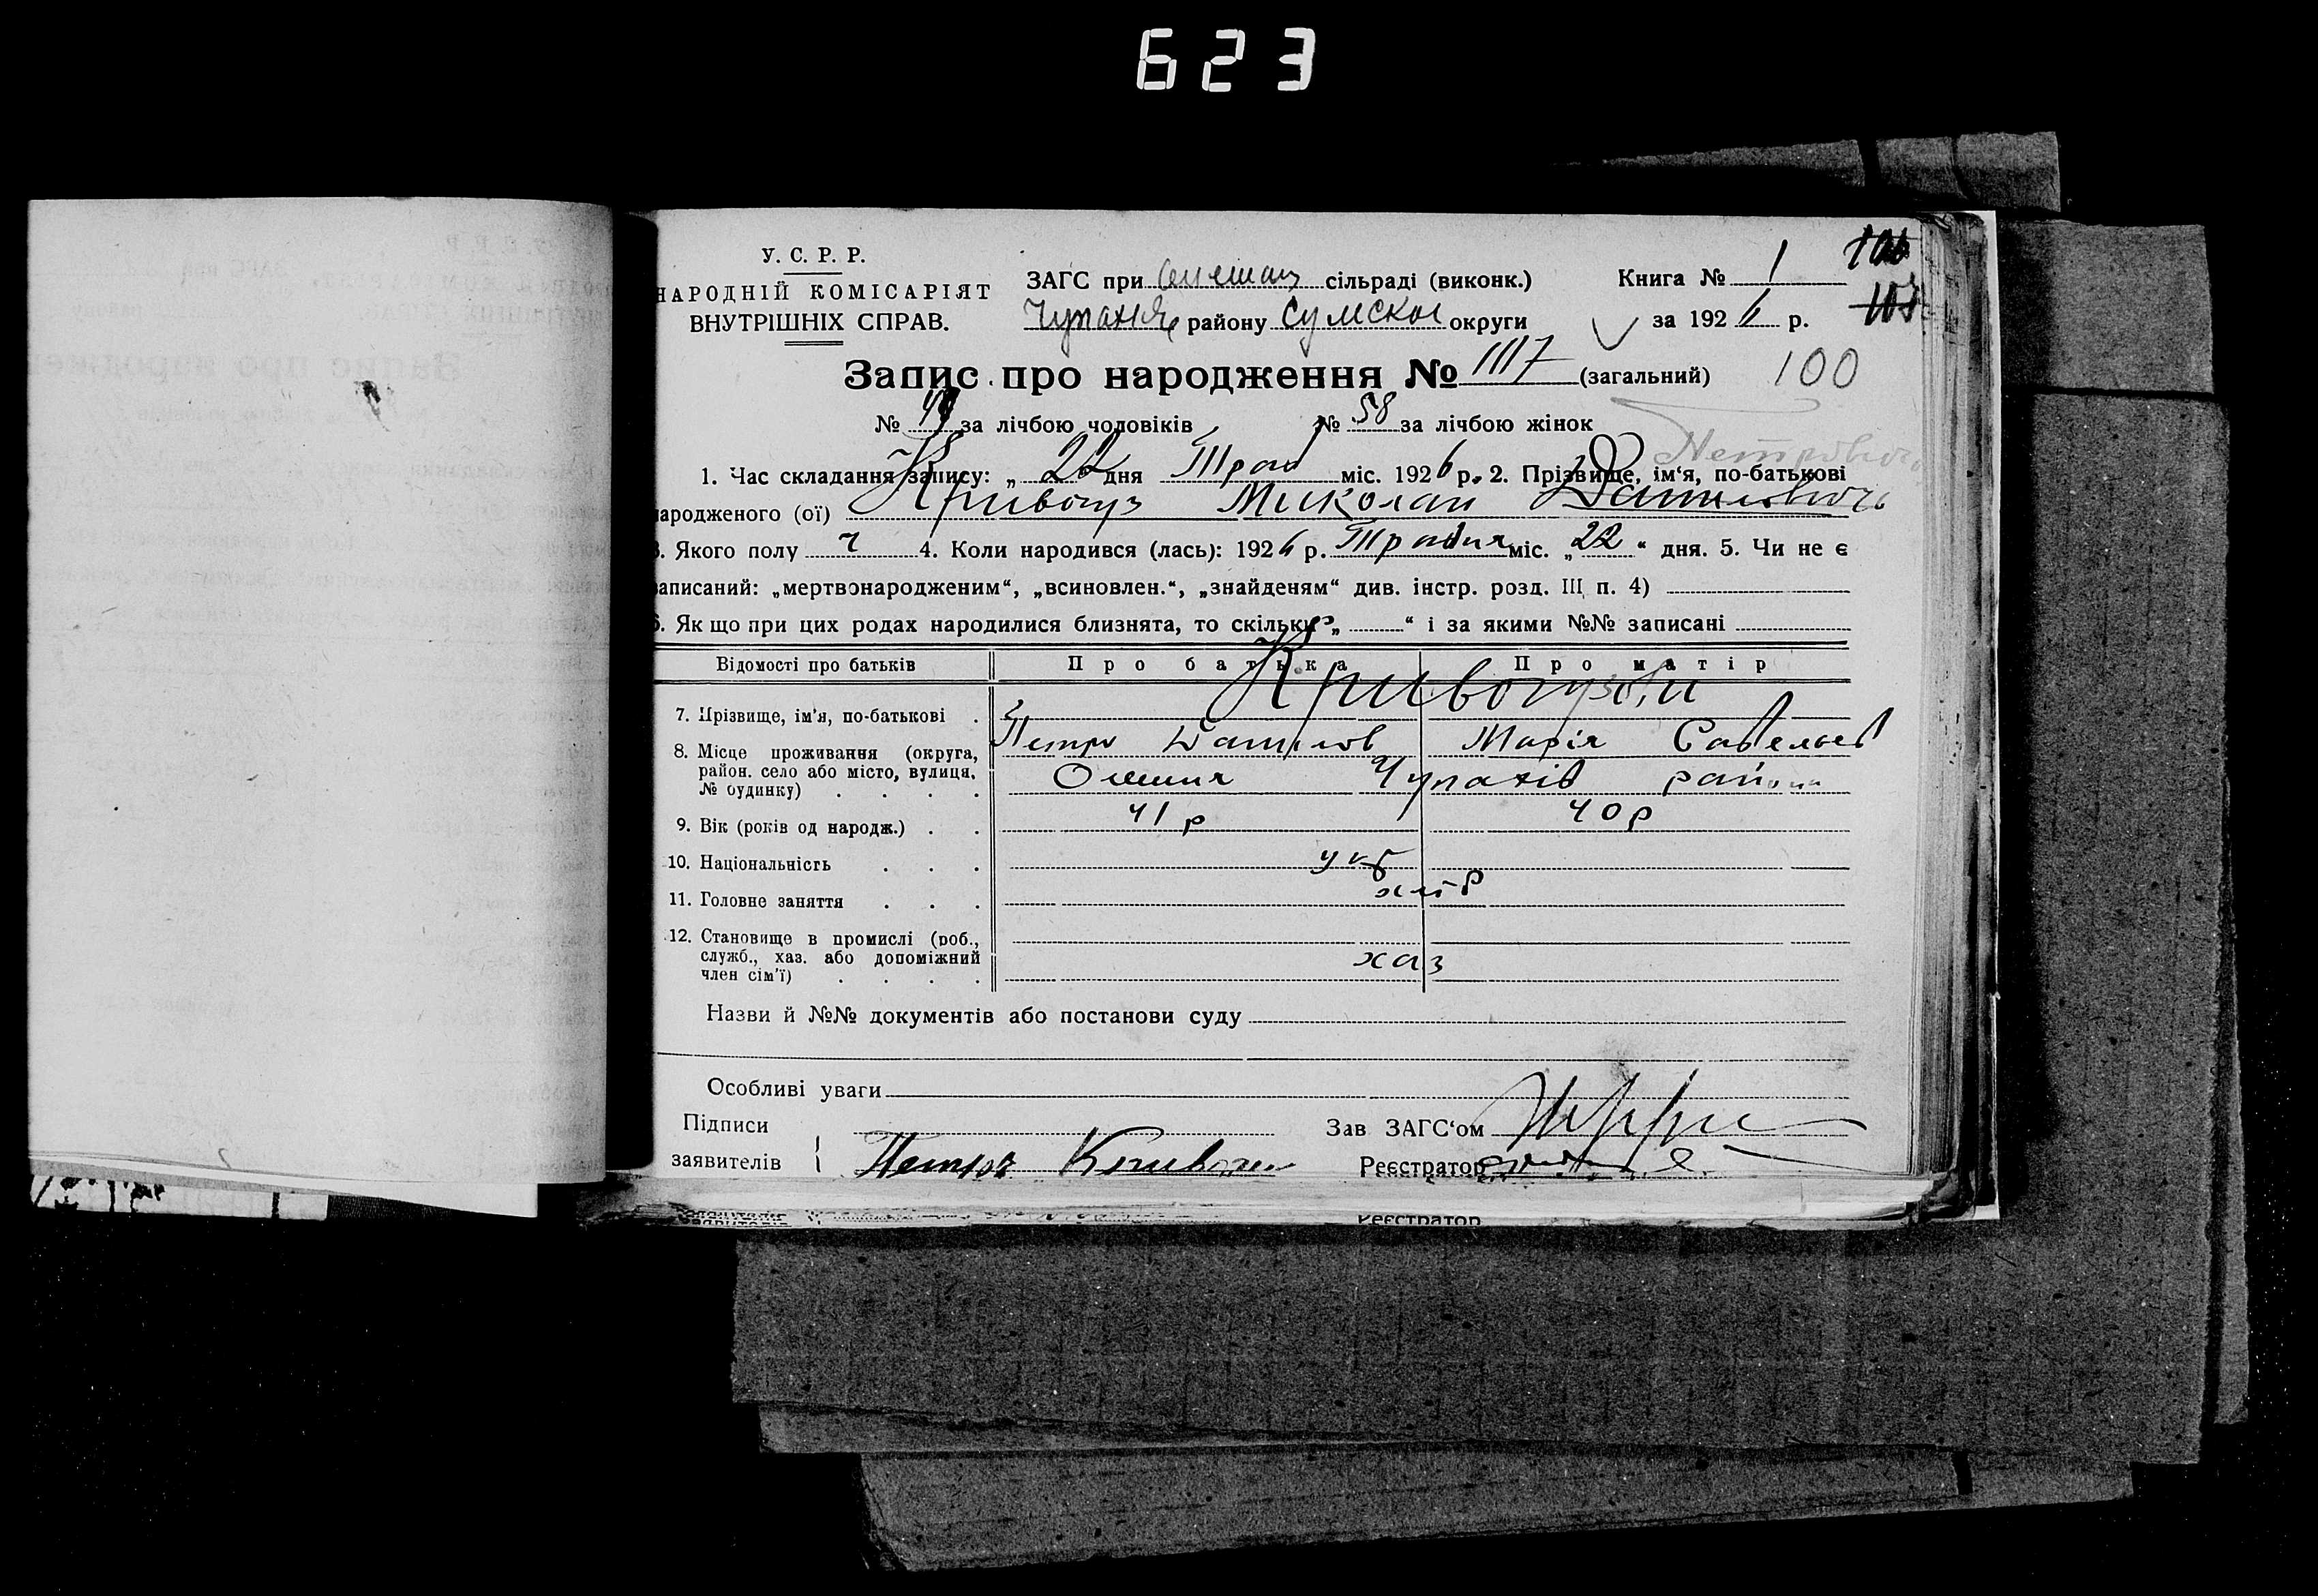 623
У. С. Р. Р.
НАРОДНІЙ КОМІСАРІЯТ
ВНУТРІШНІХ СПРАВ.
ЗАГС при сільраді (виконк.)
району Сумской округи
Книга № 1
за 1926 р.
100
Запис про народження № (загальний)
№ за лічбою чоловіків № 58 за лічбою жінок
Петрович
1. Час складання запису: „ 22 дня Трав міс. 1926 р. 2. Прізвище, ім‘я, по-батькові
народженого (ої) Кривогуз Миколай Данилович
3. Якого полу ч 4. Коли народився (лась): 1926 р. Травня міс. „22“ дня. 5. Чи не є
записаний: „мертвонародженим“, „всиновлен.“, „знайденям“ див. інстр. розд. III п. 4)
6. Якщо при цих родах народилися близнята, то скільки „ “ і за якими №№ записані
Відомості про батьків Про батька Про матір
7. Прізвище, ім'я, по-батькові Кривогузови
Петро Данилов Марія Савельев
8. Місце проживання (округа, район. село або місто, вулиця, № будинку) Олешня Чупахів район
9. Вік (років од народж.) 41 р 40 р
10. Національність укр
11. Головне заняття хліб
12. Становище в промислі (роб., служб., хаз. або допоміжний член сім'ї) хаз
Назви й №№ документів або постанови суду
Особливі уваги
Підписи
заявителів Петро
Зав ЗАГС‘ом
Реєстратор
Реєстратор